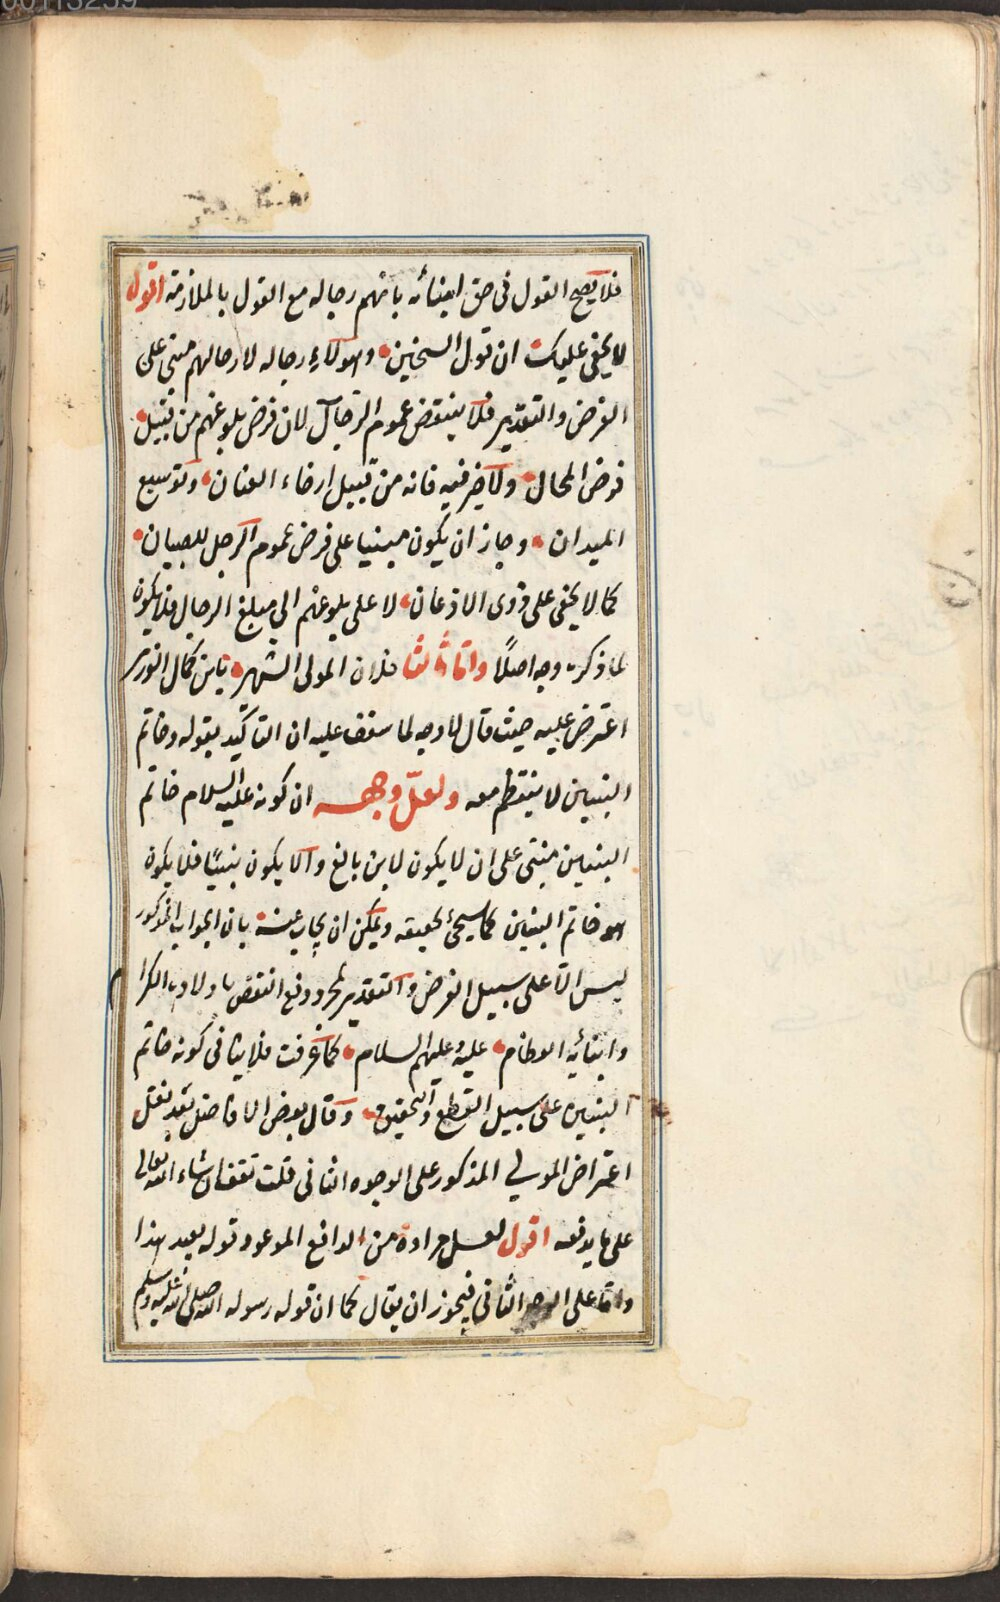 فلا يصح القول فى حق ابنائه بانهم رجاله مع القول بالملازمة اقول
لا يخفى عليك ان قول الشيخين وهؤلاء رجاله لا رجالهم مبنى على
الفرض والتقدير فلا ينتقض عموم الرجال لان فرض بلوغهم من قبيل
فرض المحال ولا ضير فيه فانه من قبيل ارخاء العنان وتوسيع
الميدان وجاز ان يكون مبنيا على فرض عموم الرجل للصبيان
كما لا يخفى على ذوى الاذعان لا على بلوغهم الى مبلغ الرجال فلا يكون
لما ذكره وجه اصلًا واما ثالثا فلان المولى الشهير بابن كمال الوزير
اعترض عليه حيث قال لا وجه لما ستقف عليه ان التاكيد بقوله وخاتم
النبيين لا ينتظم معه ولعلّ وجهه ان كونه عليه السلام خاتم
النبيين مبنى على ان لا يكون له ابن بالغ والا يكون نبيًا فلا يكون
هو خاتم النبيين كما سيجئ تحقيقه ويمكن ان يجاب عنه بان الجواب المذكور
ليس الا على سبيل الفرض والتقدير لمجرد دفع النقض باولاده الكرام
وابنائه العظام عليه وعليهم السلام كما عرفت فلا ينافى كونه خاتم
النبيين على سبيل القطع والتحقيق وقال بعض الافاضل بعد نقل
اعتراض المولى المذكور على الوجه الثانى قلت تقف ان شاء الله تعالى
على ما يدفعه اقول لعل مراده من الدافع الموعود قوله بعيد هذا
واما على الوجه الثانى فيجوز ان يقال كما ان قوله رسول الله صلى الله عليه وسلم